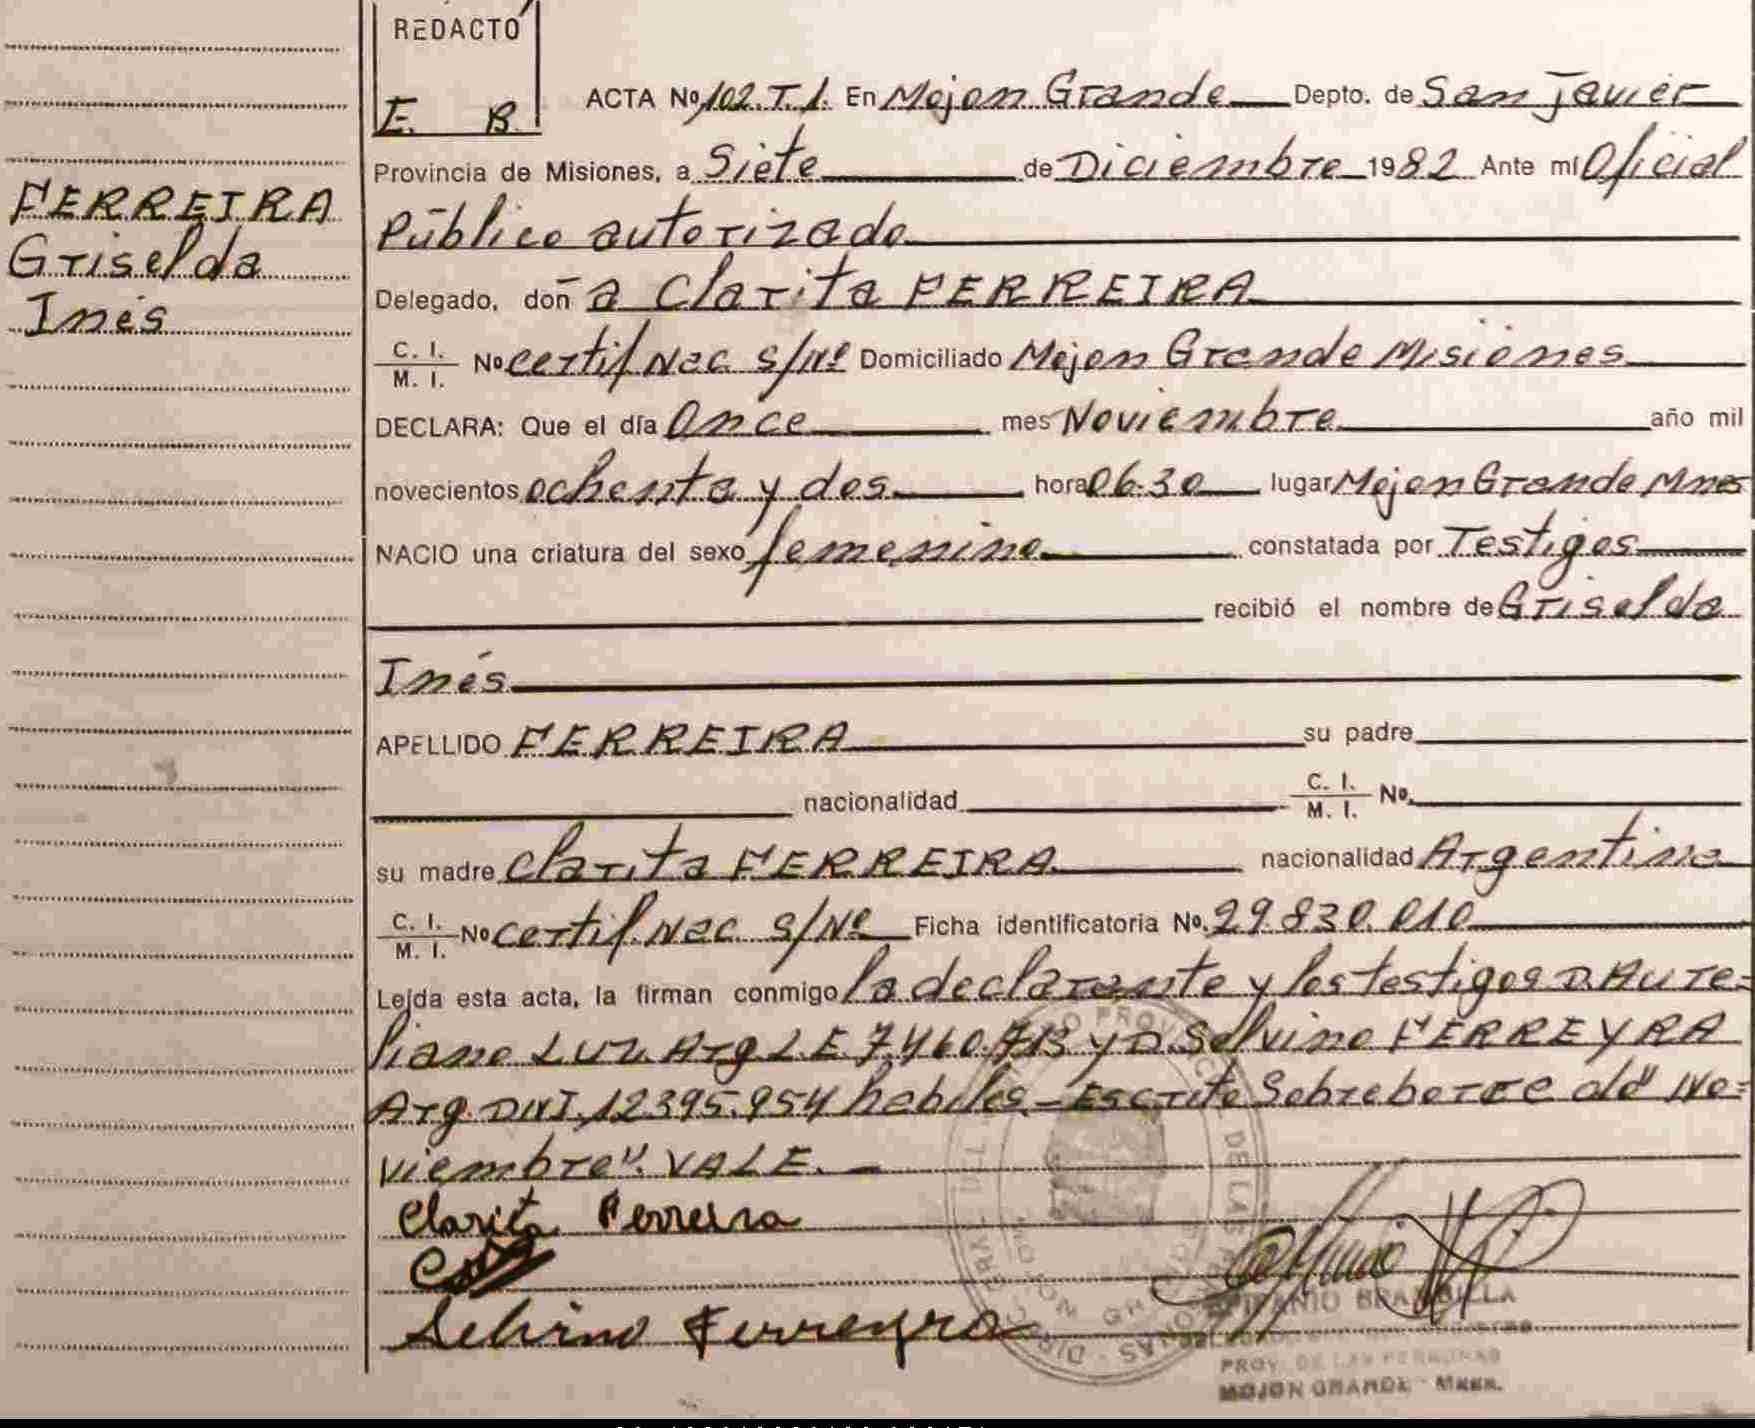 REDACTÓ
E. B.
FERREIRA
Griselda
Inés
ACTA Nº 102. T. 1. En Mojon Grande Depto. de San Javier
Provincia de Misiones, a Siete de Diciembre 1982 Ante mí Oficial
Público autorizado
Delegado, don a Clarita FERREIRA
C. I.
M. I. Nº certif. Nac s/Nº Domiciliado Mojon Grande Misiones
DECLARA: Que el día Once mes Noviembre año mil
novecientos ochenta y dos hora 06.30 lugar Mojon Grande Mnes
NACIO una criatura del sexo femenino constatada por Testigos
recibió el nombre de Griselda
Inés
APELLIDO FERREIRA su padre
nacionalidad C. I.
M. I. Nº
su madre Clarita FERREIRA nacionalidad Argentina
C. I.
M. I. Nº certif. Nac s/Nº Ficha identificatoria Nº 29.830.010
Leída esta acta, la firman conmigo la declarante y los testigos D. Aure=
liano LUZ. Arg L.E 7.460.713 y D. Selvino FERREYRA
Arg. DNI. 12395.954 habiles.- Escrito Sobreborre old "No=
viembre". VALE.-
Clarita Ferreira
Selvino Ferreyra
EPIFANIO BRAMBILLA
PROV. DE LAS PERSONAS
MOJON GRANDE - Mnes.